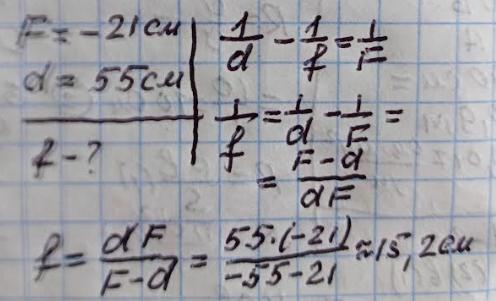 F = -21 см
d = 55 см
f - ?
1/d - 1/f = 1/F
1/f = 1/d - 1/F =
= F-d/dF
f = dF/F-d = 55·(-21)/-55-21 ≈ 15,2 см